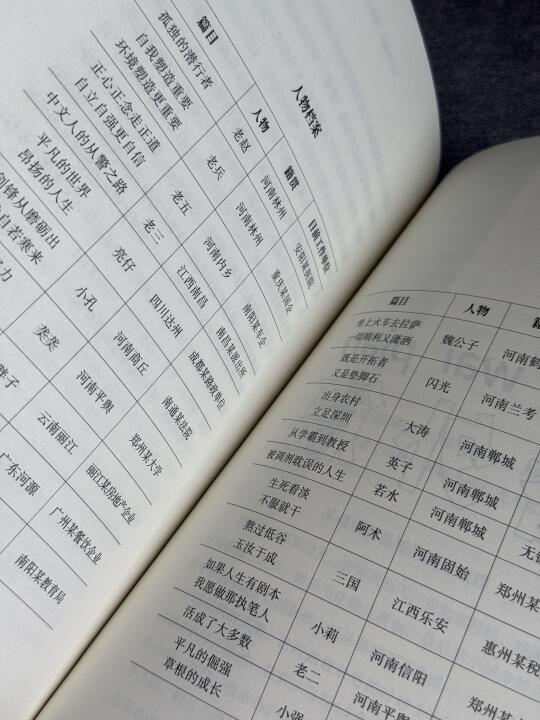 人物档案
篇目 人物 籍贯 目前工作单位
孤独的潜行者 老赵 河南林州 安阳某医院
自我塑造重要
环境塑造更重要 老兵 河南林州 重庆某国企
正心正念走正道
自立自强更自信 老五 河南内乡 南阳某车企
中文人的从警之路 老三 江西南昌 南昌某派出所
平凡的世界
昂扬的人生 亮仔 四川达州 成都某路政单位
剑锋从磨砺出 小孔 河南商丘 南通某法院
寒来
河南平舆 郑州某大学
云南丽江 丽江某房地产企业
广东河源 广州某餐饮企业
南阳某教育局
篇目 人物 籍
坐上火车去拉萨
一切顺利又潇洒 魏公子 河南鹤
既是开拓者
又是垫脚石 闪光 河南兰考
出身农村
立足深圳 大涛 河南郸城
从学霸到教授 英子 河南郸城
被调剂耽误的人生 若水 河南郸城
生死看淡
不服就干 阿术 河南固始 无锡
熬过低谷
玉汝于成 三国 江西乐安 郑州某
如果人生有剧本
我愿做那执笔人 小莉 河南信阳 惠州某税
活成了大多数 老二 河南平舆 郑州某
平凡的倔强
草根的成长 小强